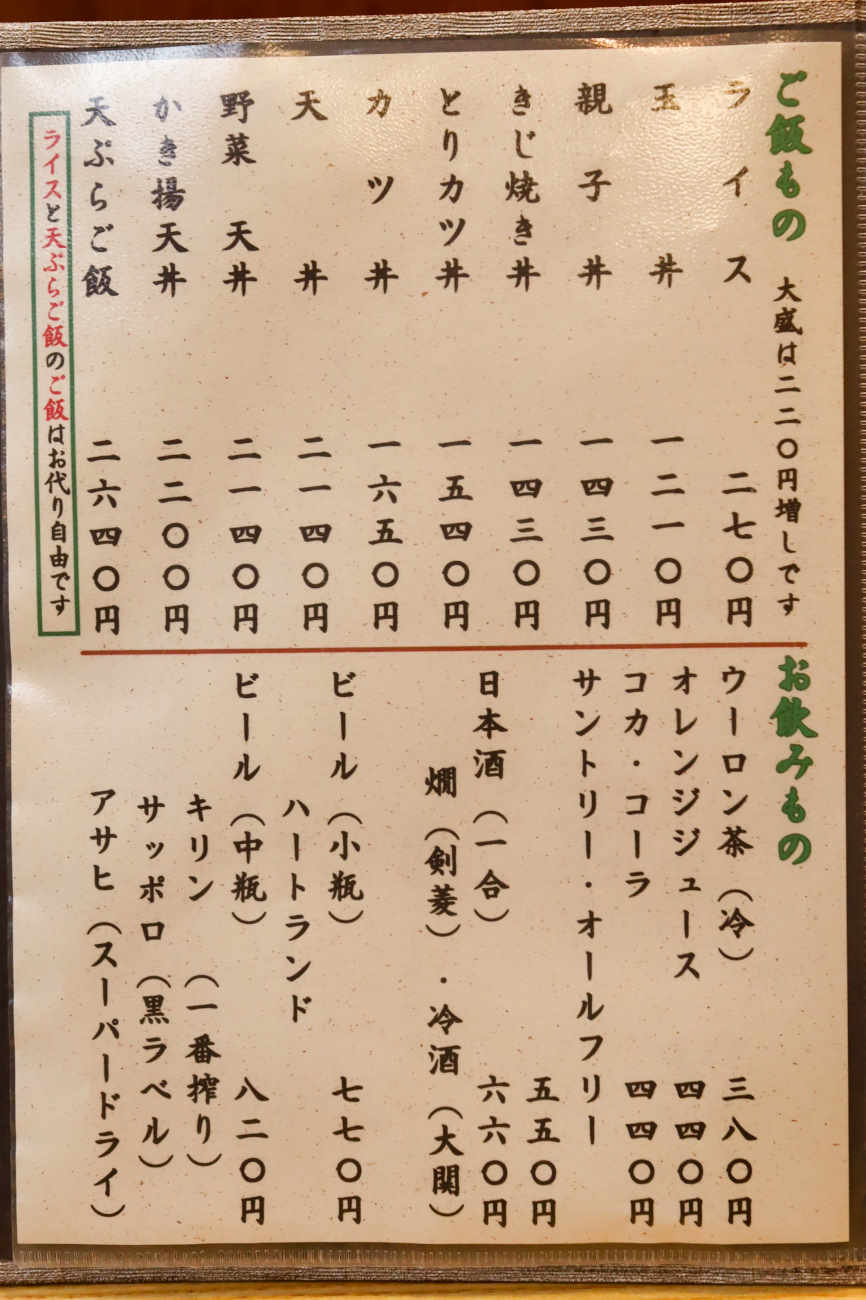 ご飯もの 大盛は二二〇円増しです
ライス 二七〇円
玉丼 一二一〇円
親子丼 一四三〇円
きじ焼き丼 一四三〇円
とりカツ丼 一五四〇円
カツ丼 一六五〇円
天丼 二一四〇円
野菜天丼 二一四〇円
かき揚天丼 二二〇〇円
天ぷらご飯 二六四〇円
ライスと天ぷらご飯のご飯はお代り自由です
お飲みもの
ウーロン茶（冷） 三八〇円
オレンジジュース 四四〇円
コカ・コーラ 四四〇円
サントリー・オールフリー
五五〇円
日本酒（一合） 六六〇円
燗（剣菱）・冷酒（大関）
ビール（小瓶） 七七〇円
ハートランド
ビール（中瓶） 八二〇円
キリン（一番搾り）
サッポロ（黒ラベル）
アサヒ（スーパードライ）